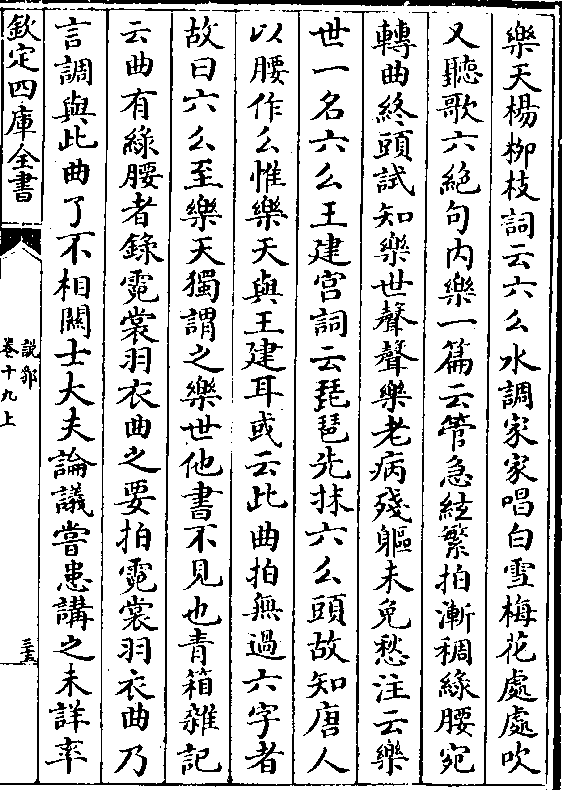 樂天楊栁枝詞云六么水調家家唱白雪梅花處處吹
又聽歌六絶句内樂一篇云管急絃繁拍漸稠緑腰宛
轉曲終頭試知樂世聲聲樂老病殘軀未免愁注云樂
世一名六么王建宫詞云琵琶先抹六么頭故知唐人
以腰作么惟樂天與王建耳或云此曲拍無過六字者
故曰六么至樂天獨謂之樂世他書不見也青箱雜記
云曲有緑腰者錄霓裳羽衣曲之要拍霓裳羽衣曲乃
言調與此曲了不相關士大夫論議嘗患講之未詳率
欽定四庫全書
說郛
卷十九上
三十五